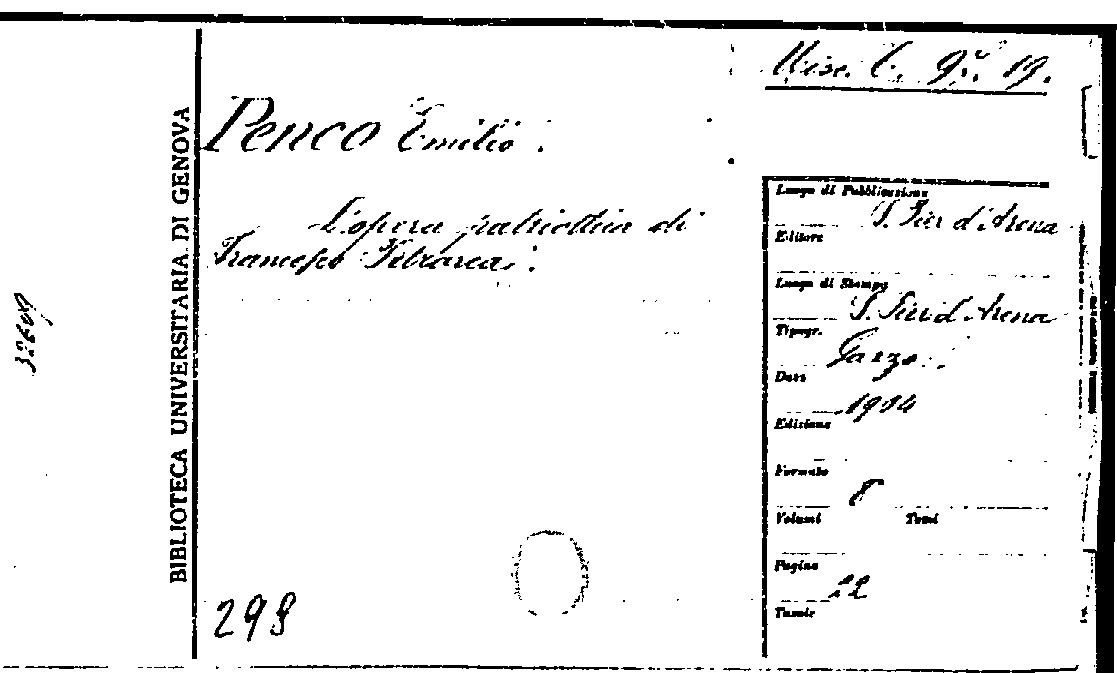 Misc. C. 9². 19.
BIBLIOTECA UNIVERSITARIA DI GENOVA
Penco Emilio.
L'opera patriottica di
Francesco Petrarca.
Luogo di Pubblicazione
S. Pier d'Arena
Editore
Luogo di Stampa
S. Pier d'Arena
Tipogr.
Data
1904
Edizione
Formato
8
Volumi Tomi
Pagine
22
Tavole
298